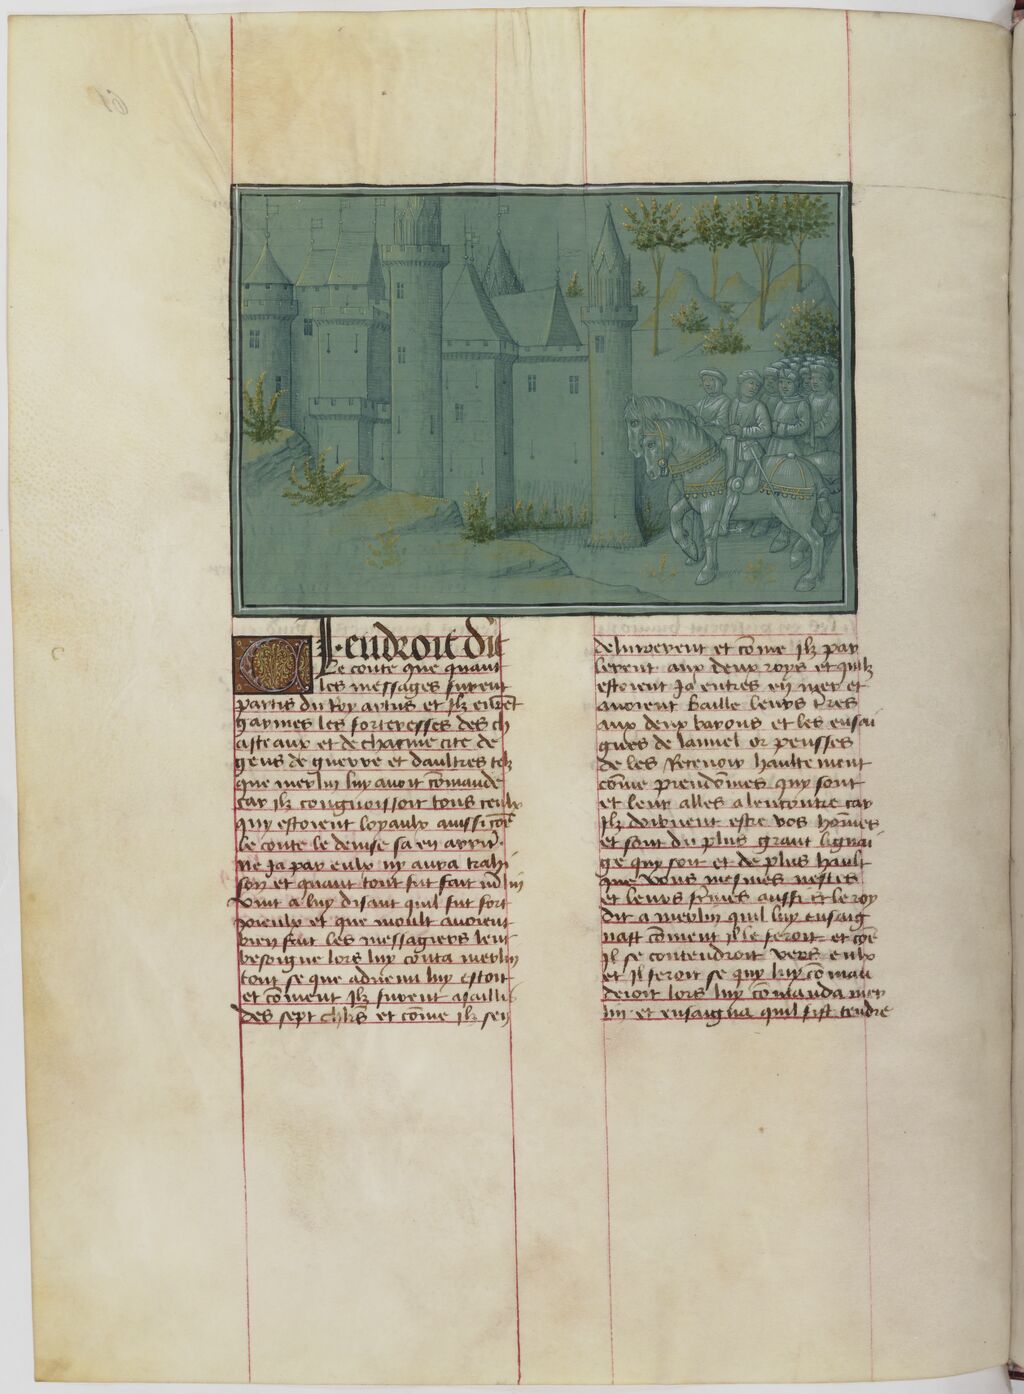 CI endroit dit
le conte que quant
les messages furent
partis du Roy artus et Ilz eurēt
garnies les forteresses des ch
asteaux et de chacune cite de
gens de guerre et daultres telz
que merlin luy auoit cōmande
car Ilz congnoissoit tous ceulx
quy estoient loyaulx aussi cōe
le conte le deuise sa en arrir̄
Ne Ja par eulx ny aura trahi
son et quant tout fut fait m̄lin
vint a luy disant quil fut fort
Joieulx et que moult auoient
bien fait les messagiers leur
besoigne lors luy conta merlin
tout se que aduenu luy estoit
et cōment Ilz furent asaillis
des sept chlr̄s et cōme Ilz sen
deliurerent et cōme Ilz par
lerent aux deux roys et quilz
estoient Ja entres en mer et
auoient baille leurs tr̄res
aux deux barons et les ensai
gnes de lannel or pensses
de les Retenoir haultement
cōme preudōmes quy sont
et leur alles alencontre car
Ilz doiuent estre vos hōmes
et sont du plus grant lignai
ge quy soit et de plus hault
que vous mesmes nestes
et leurs fēmes aussi et le roy
dit a merlin quil luy ensaig
nast cōment Il le feroit et cōe
Il se contendroit vers eulx
et Il feroit se quy luy cōman
deroit lors luy cōmanda mer
lin et ensaigna quil fist tendre